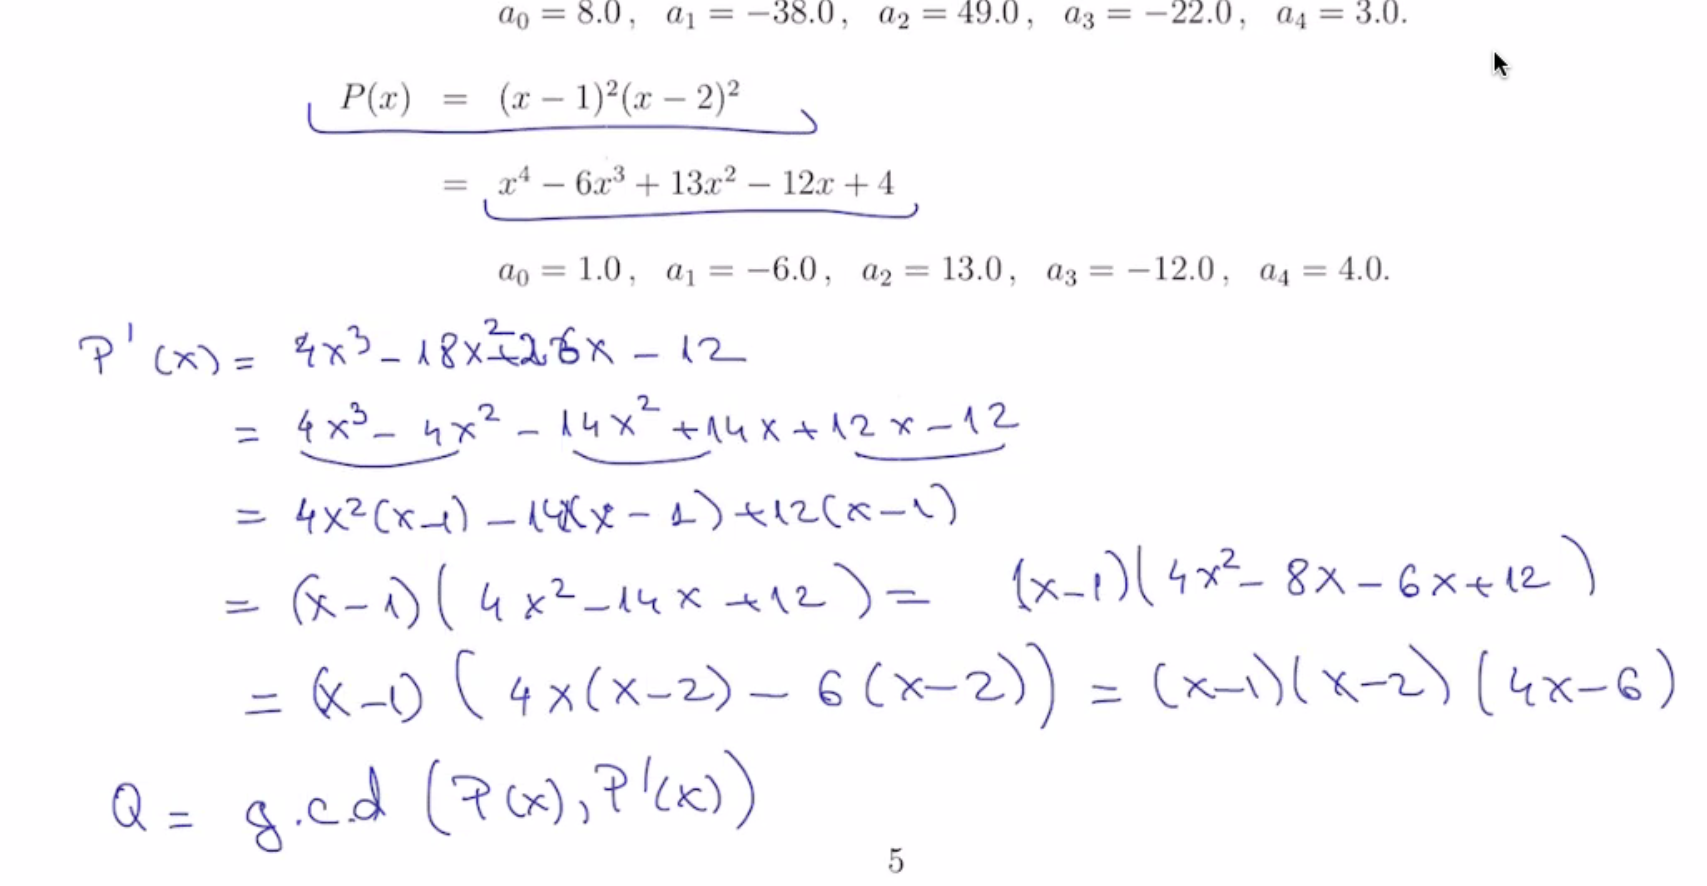 a₀ = 8.0 ,  a₁ = −38.0 ,  a₂ = 49.0 ,  a₃ = −22.0 ,  a₄ = 3.0.
P(x) = (x − 1)²(x − 2)²
= x⁴ − 6x³ + 13x² − 12x + 4
a₀ = 1.0 ,  a₁ = −6.0 ,  a₂ = 13.0 ,  a₃ = −12.0 ,  a₄ = 4.0.
P'(x) = 4x³ − 18x² + 26x − 12
= 4x³ − 4x² − 14x² + 14x + 12x − 12
= 4x²(x−1) − 14x(x − 1) + 12(x−1)
= (x−1)(4x² − 14x + 12) = (x−1)(4x² − 8x − 6x + 12)
= (x−1)(4x(x−2) − 6(x−2)) = (x−1)(x−2)(4x−6)
Q = g.c.d (P(x), P'(x))
5